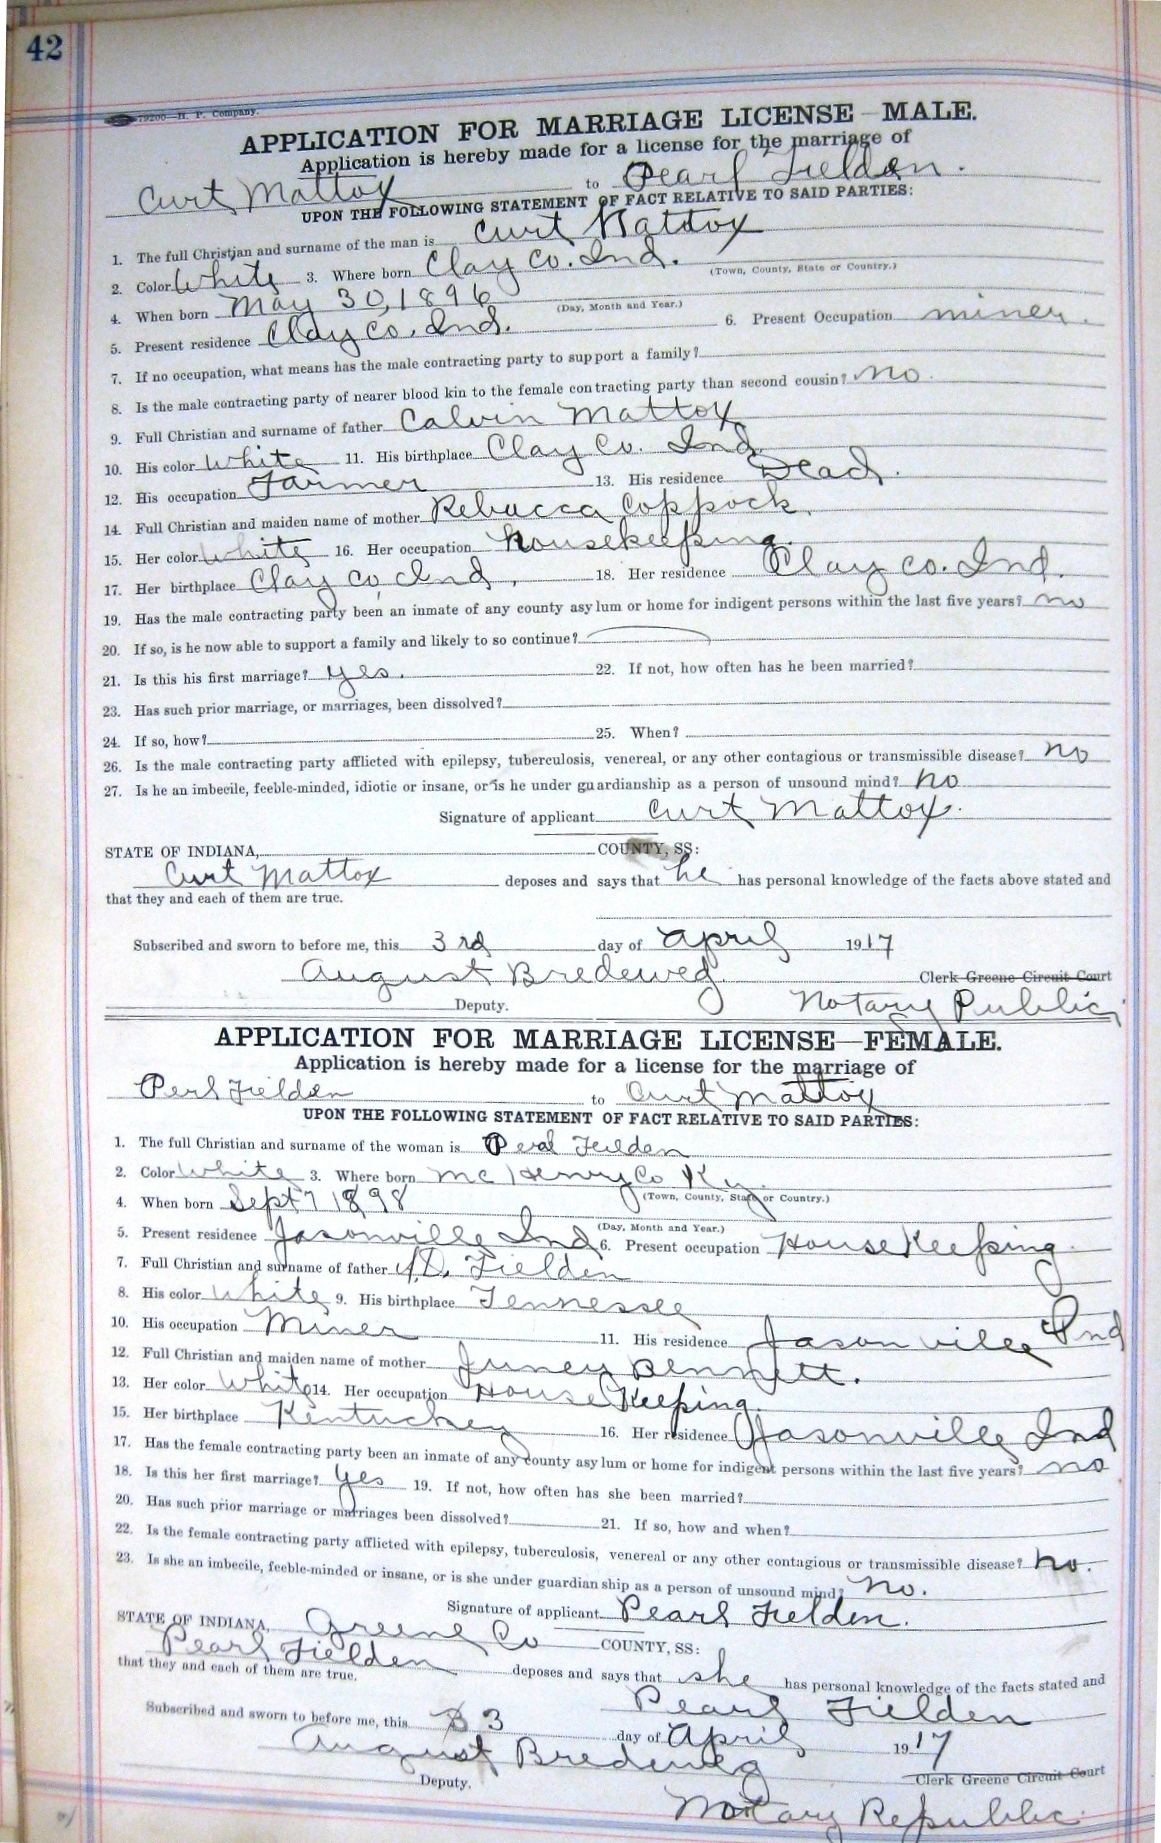 42
79200—H. P. Company.
APPLICATION FOR MARRIAGE LICENSE—MALE.
Application is hereby made for a license for the marriage of
Curt Mattox to Pearl Fielden.
UPON THE FOLLOWING STATEMENT OF FACT RELATIVE TO SAID PARTIES:
1. The full Christian and surname of the man is Curt Mattox
2. Color White 3. Where born Clay Co. Ind. (Town, County, State or Country.)
4. When born May 30, 1896 (Day, Month and Year.)
5. Present residence Clay Co. Ind. 6. Present Occupation miner.
7. If no occupation, what means has the male contracting party to support a family?
8. Is the male contracting party of nearer blood kin to the female contracting party than second cousin? no.
9. Full Christian and surname of father Calvin Mattox
10. His color White 11. His birthplace Clay Co. Ind
12. His occupation Farmer 13. His residence Dead.
14. Full Christian and maiden name of mother Rebucca Coppock.
15. Her color White 16. Her occupation housekeeping.
17. Her birthplace Clay Co, Ind, 18. Her residence Clay Co. Ind.
19. Has the male contracting party been an inmate of any county asylum or home for indigent persons within the last five years? no
20. If so, is he now able to support a family and likely to so continue?
21. Is this his first marriage? yes. 22. If not, how often has he been married?
23. Has such prior marriage, or marriages, been dissolved?
24. If so, how? 25. When?
26. Is the male contracting party afflicted with epilepsy, tuberculosis, venereal, or any other contagious or transmissible disease? no
27. Is he an imbecile, feeble-minded, idiotic or insane, or is he under guardianship as a person of unsound mind? no
Signature of applicant Curt Mattox.
STATE OF INDIANA, COUNTY, SS:
Curt Mattox deposes and says that he has personal knowledge of the facts above stated and
that they and each of them are true.
Subscribed and sworn to before me, this 3rd day of April 1917
August Bredeweg. Clerk Greene Circuit Court
Deputy. Notary Public,
APPLICATION FOR MARRIAGE LICENSE—FEMALE.
Application is hereby made for a license for the marriage of
Perl Fielden to Curt Mattox
UPON THE FOLLOWING STATEMENT OF FACT RELATIVE TO SAID PARTIES:
1. The full Christian and surname of the woman is Peral Feilden
2. Color White 3. Where born Mc Henry Co Ky. (Town, County, State or Country.)
4. When born Sept 7 1898 (Day, Month and Year.)
5. Present residence Jasonville Ind 6. Present occupation House Keeping.
7. Full Christian and surname of father Fielden
8. His color White 9. His birthplace Tennessee
10. His occupation Miner 11. His residence Jasonville Ind
12. Full Christian and maiden name of mother Juney Bennett.
13. Her color White 14. Her occupation House Keeping.
15. Her birthplace Kentuckey 16. Her residence Jasonville Ind
17. Has the female contracting party been an inmate of any county asylum or home for indigent persons within the last five years? no
18. Is this her first marriage? Yes 19. If not, how often has she been married?
20. Has such prior marriage or marriages been dissolved? 21. If so, how and when?
22. Is the female contracting party afflicted with epilepsy, tuberculosis, venereal or any other contagious or transmissible disease? no.
23. Is she an imbecile, feeble-minded or insane, or is she under guardianship as a person of unsound mind? no.
Signature of applicant Pearl Fielden.
STATE OF INDIANA, Greene Co COUNTY, SS:
Pearl Fielden deposes and says that she has personal knowledge of the facts stated and
that they and each of them are true.
Pearl Fielden
Subscribed and sworn to before me, this 3 day of April 1917
August Bredeweg Clerk Greene Circuit Court
Deputy.
Notary Republic.